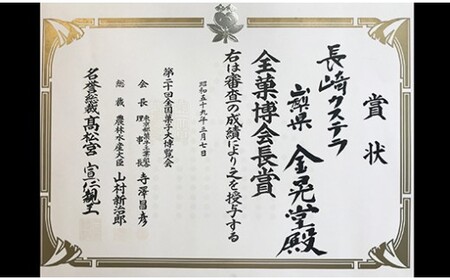 賞状
長崎カステラ
山梨県 金晃堂殿
全菓博会長賞
右は審査の成績により之を授与する
昭和五十九年三月七日
第二十回全国菓子大博覧会
会長 寺澤昌彦
総裁 農林水産大臣 山村新治郎
名誉総裁 高松宮 宣仁親王